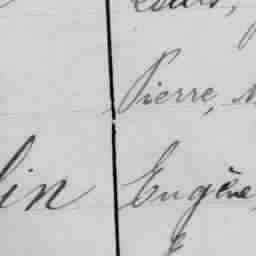 Pierre,
lin Eugène